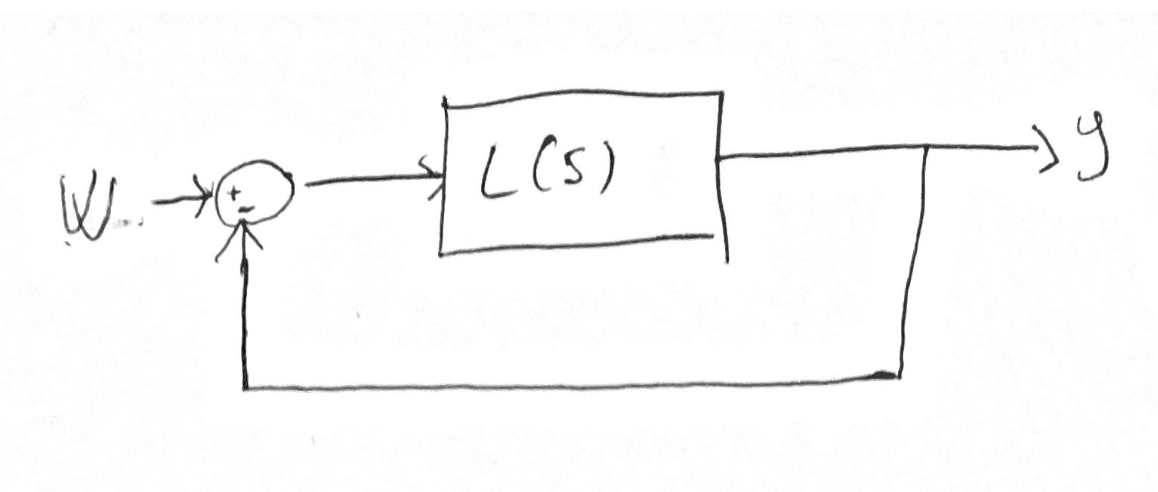 W
+
-
L(s)
y